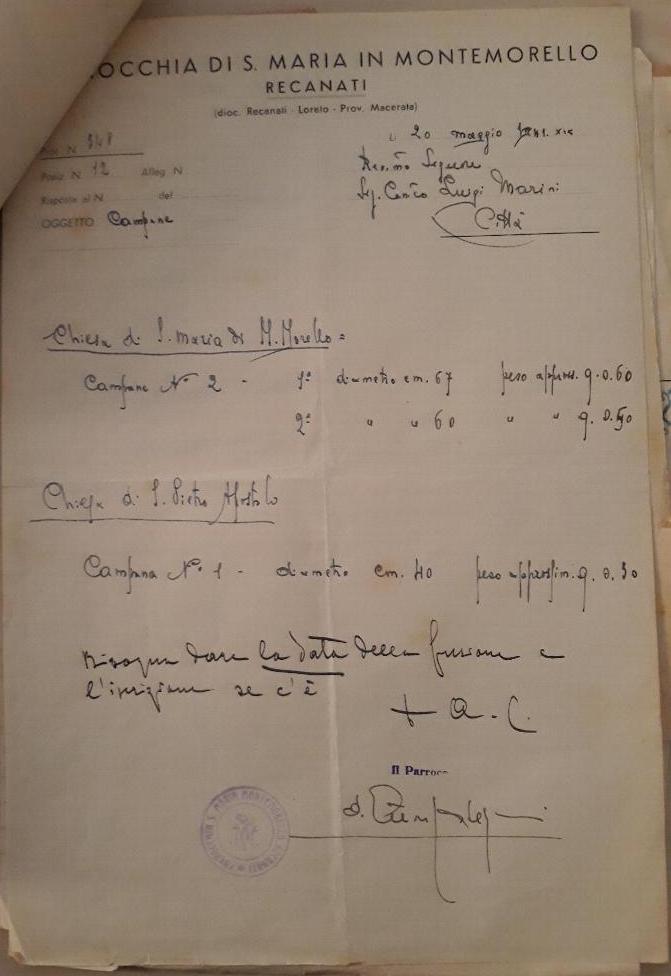 OCCHIA DI S. MARIA IN MONTEMORELLO
RECANATI
(dioc. Recanati - Loreto - Prov. Macerata)
N. 348
Posiz. N. 12 Alleg. N.
Risposta al N. del
OGGETTO Campane
20 maggio XIX
Rev.mo Signore
Luigi Marini
Città
Chiesa di S. Maria di M. Morello =
Campane N° 2 - 1ª diametro cm. 67 peso appross. q. 0.60
2ª " " 60 " " q. 0.50
Chiesa di S. Pietro Apostolo
Campana N° 1 - diametro cm. 40 peso appross. q. 0.30
Bisogna dare la data della fusione e
l'iscrizione se c'è
+ a. C.
Il Parroco
d.